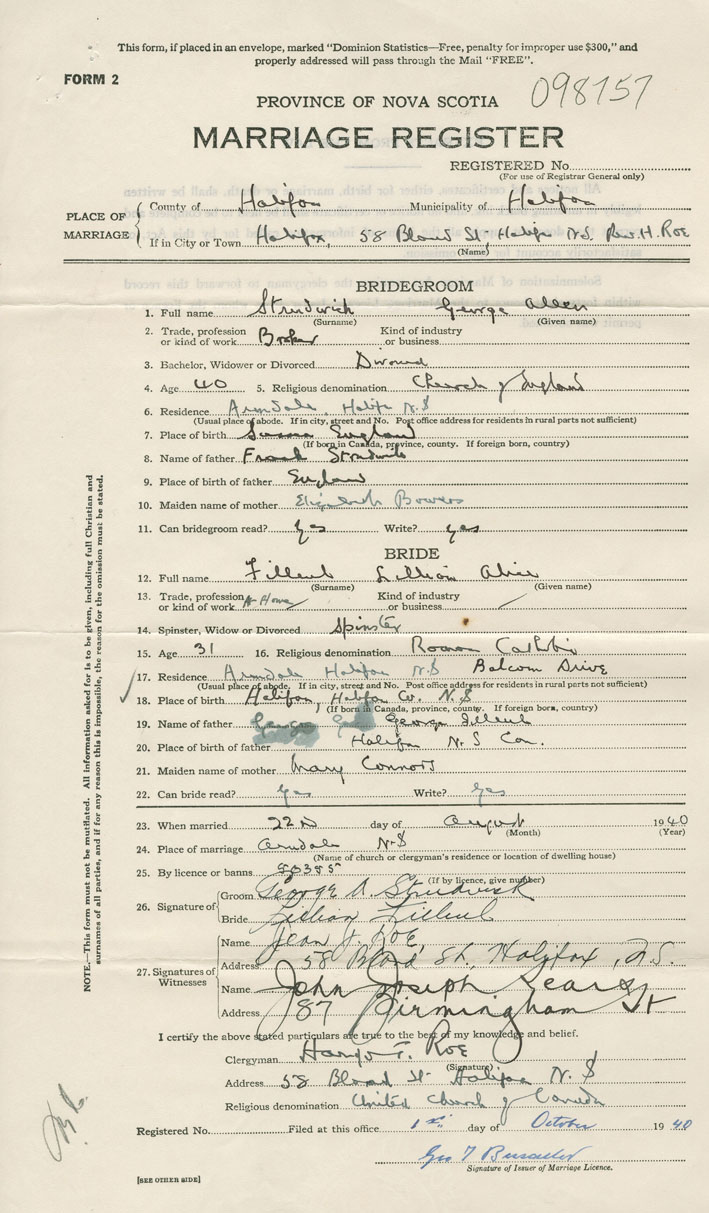 This form, if placed in an envelope, marked "Dominion Statistics—Free, penalty for improper use $300," and
properly addressed will pass through the Mail "FREE".
FORM 2
098157
PROVINCE OF NOVA SCOTIA
MARRIAGE REGISTER
REGISTERED No.
(For use of Registrar General only)
PLACE OF MARRIAGE
County of Halifax Municipality of Halifax
If in City or Town Halifax, 58 Bland St, Halifax N.S. Rev. H. Roe
(Name)
BRIDEGROOM
1. Full name Strudwick George Allen
(Surname) (Given name)
2. Trade, profession or kind of work Kind of industry or business
3. Bachelor, Widower or Divorced Divorced
4. Age 40 5. Religious denomination Church of England
6. Residence Armdale, Halifax N.S
(Usual place of abode. If in city, street and No. Post office address for residents in rural parts not sufficient)
7. Place of birth Sussex England
(If born in Canada, province, county. If foreign born, country)
8. Name of father Frank Strudwick
9. Place of birth of father England
10. Maiden name of mother Elizabeth Bowers
11. Can bridegroom read? yes Write? yes
BRIDE
12. Full name Filleul Lillian Alice
(Surname) (Given name)
13. Trade, profession or kind of work At Home Kind of industry or business
14. Spinster, Widow or Divorced Spinster
15. Age 31 16. Religious denomination Roman Catholic
17. Residence Armdale Halifax N.S Balcom Drive
(Usual place of abode. If in city, street and No. Post office address for residents in rural parts not sufficient)
18. Place of birth Halifax, Halifax Co. N.S
(If born in Canada, province, county. If foreign born, country)
19. Name of father George Filleul
20. Place of birth of father Halifax N.S Can.
21. Maiden name of mother Mary Connors
22. Can bride read? yes Write? yes
23. When married 22nd day of August 1940
(Month) (Year)
24. Place of marriage Armdale N.S
(Name of church or clergyman's residence or location of dwelling house)
25. By licence or banns
(If by licence, give number)
26. Signature of
Groom George A Strudwick
Bride Lillian Filleul
27. Signatures of Witnesses
Name Jean J. Roe,
Address 58 Bland St. Halifax, N.S.
Name John Joseph
Address 87 Birmingham St
I certify the above stated particulars are true to the best of my knowledge and belief.
Clergyman T. Roe
(Signature)
Address 58 Bland St Halifax N.S
Religious denomination United Church of Canada
Registered No. Filed at this office 1st day of October 1940
Geo T
Signature of Issuer of Marriage Licence.
[SEE OTHER SIDE]
NOTE.—This form must not be mutilated. All information asked for is to be given, including full Christian and
surnames of all parties, and if for any reason this is impossible, the reason for the omission must be stated.